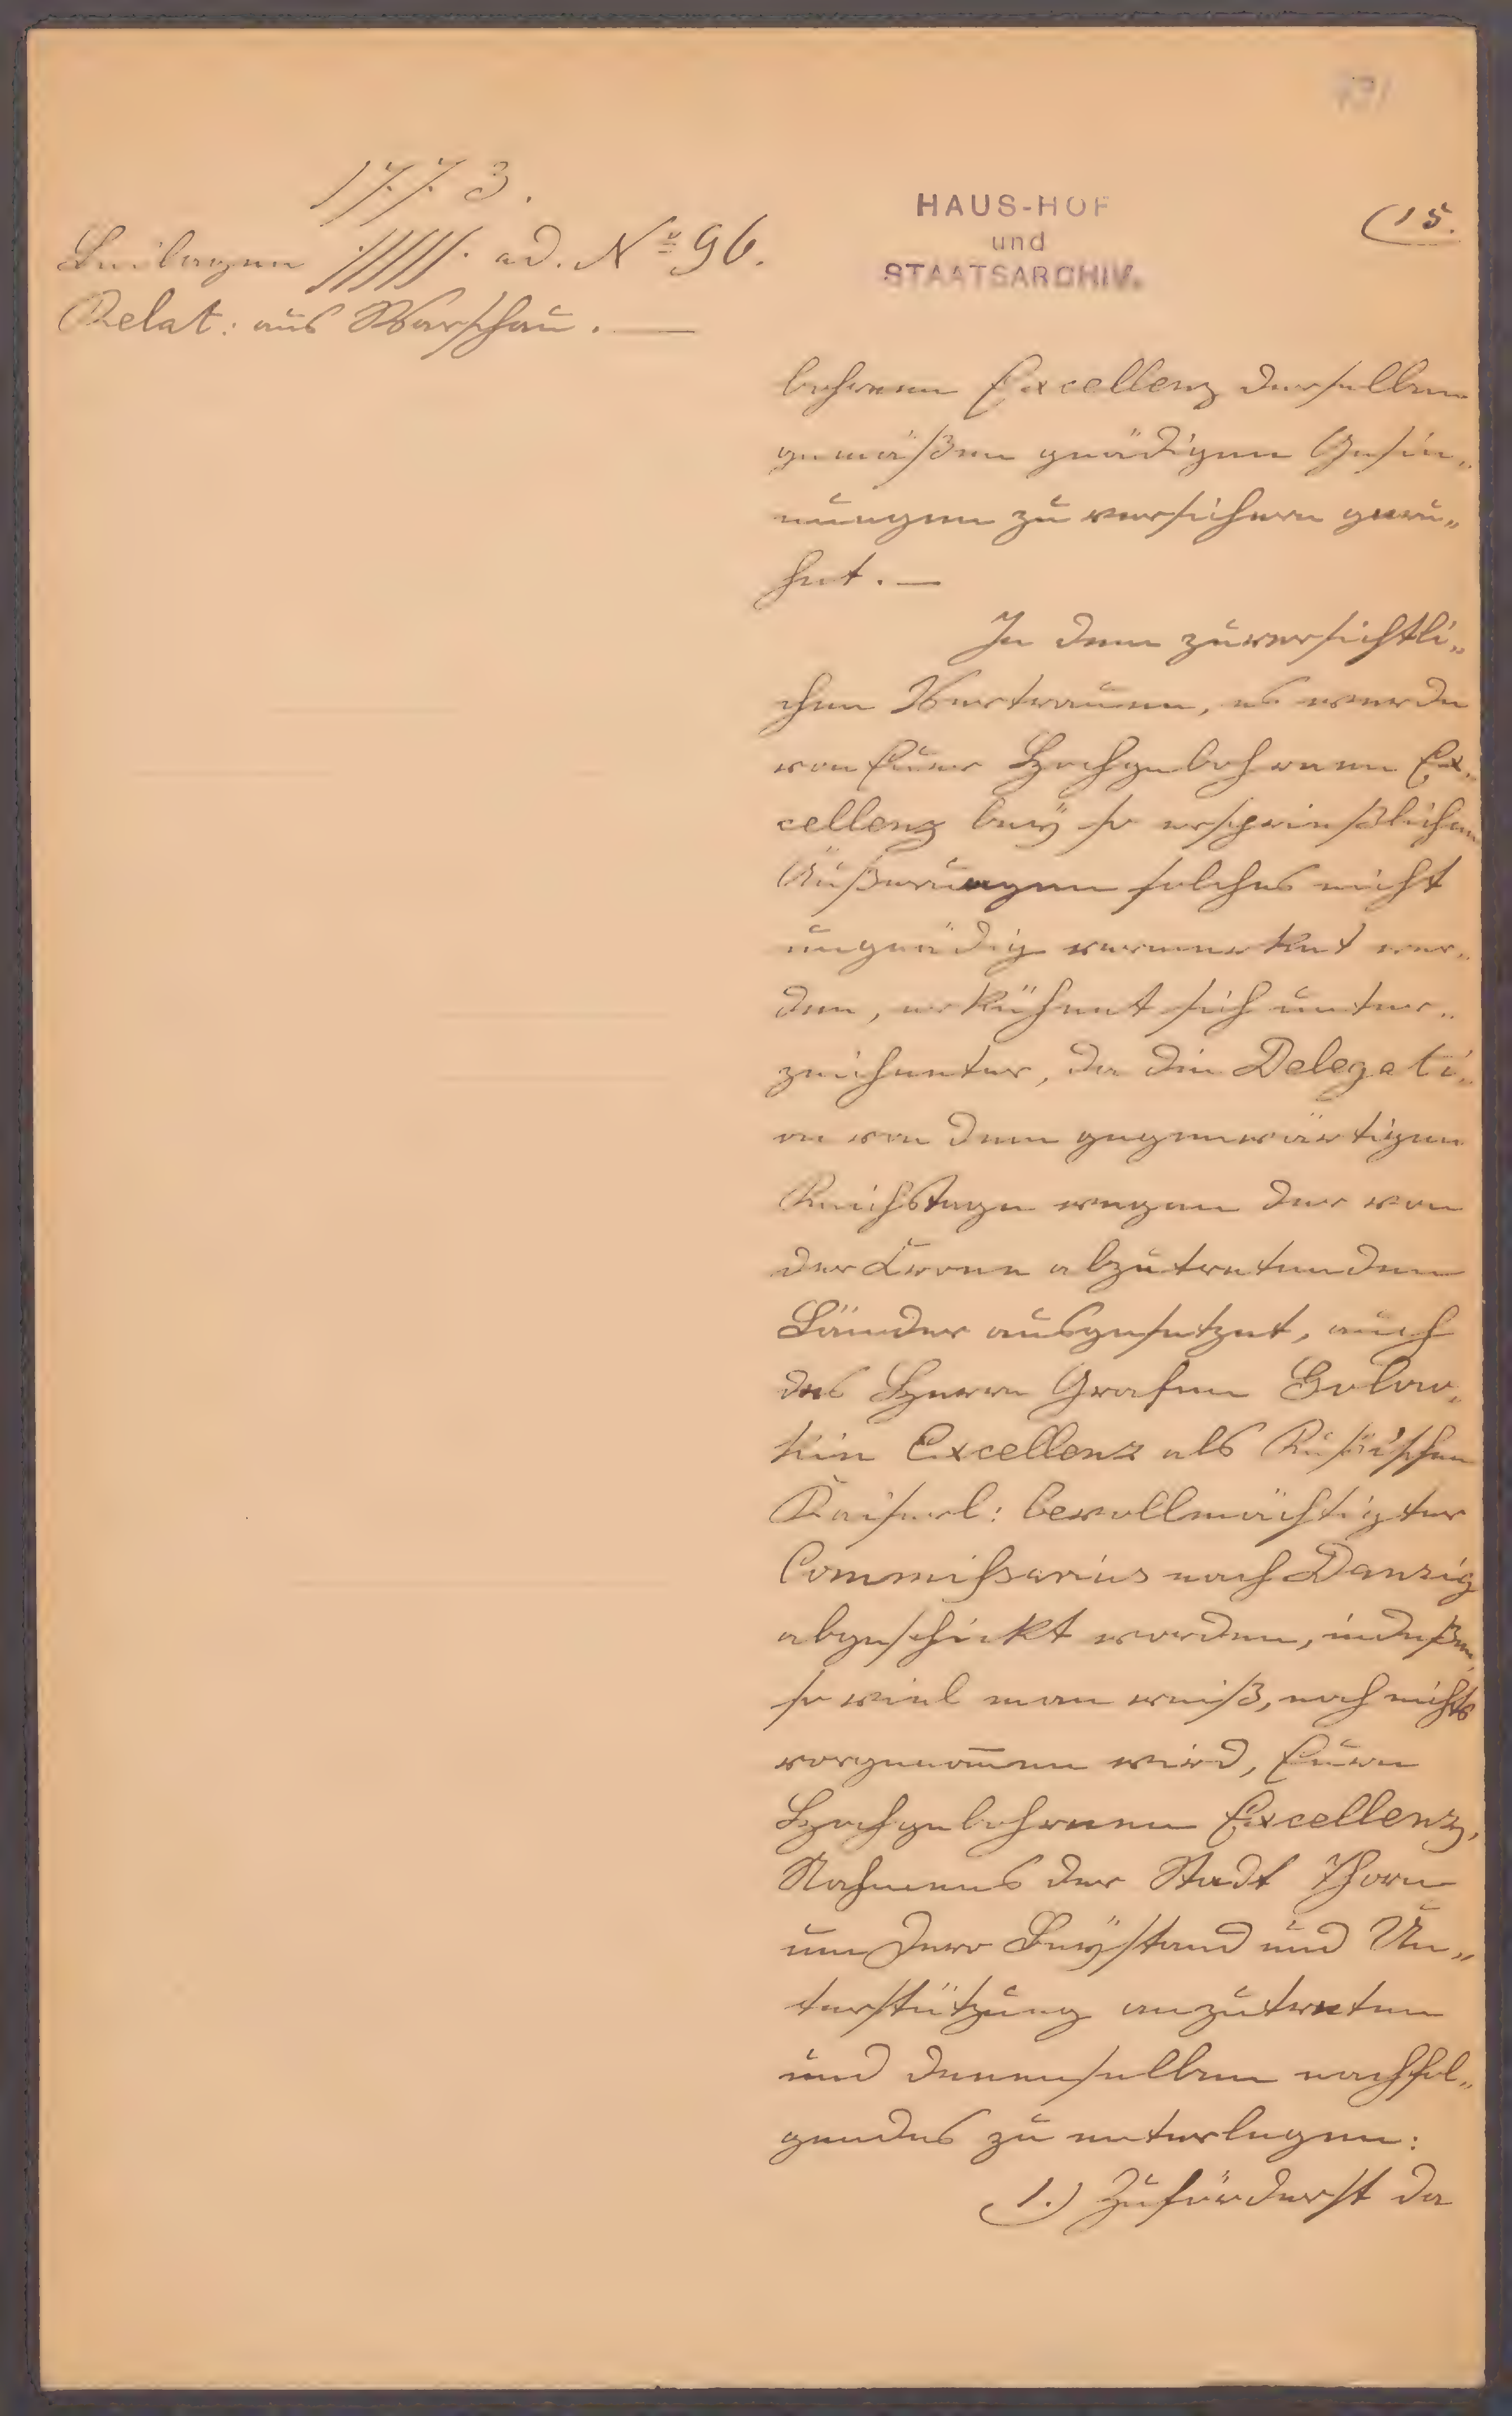 1773.
Beilagen ad. No 96.
Relat: aus Warschau. —
HAUS-HOF
und
STAATSARCHIV.
(15.
bohrenen Excellenz derselben
gemäßen gnädigen Gesin„
nungen zu versichern geru„
het. —
In dem zuversichtli„
chen Vertrauen, es werde
von Euer Hochgebohrenen Ex„
cellenz bey so ersprießlichen
Äußerungen solches nicht
ungnädig vermerket wer„
den, erkühnet sich unter„
zeichneter, da die Delegati„
on von dem gegenwärtigen
Reichstage wegen der von
der Krone abzutretenden
Länder ausgesetzet, auch
des Herrn Grafen Golow„
kin Excellenz als Rußischen
Kaiserl: bevollmächtigter
Commißarius nach Danzig
abgeschickt worden, indeßen,
so viel man weiß, noch nichts
vorgenom̄en wird, Euere
Hochgebohrenen Excellenz,
Nahmens der Stadt Thorn
um Dero Beystand und Un„
terstützung anzutreten
und Denenselben nachfol„
gendes zu unterlegen:
1.) Zuförderst da